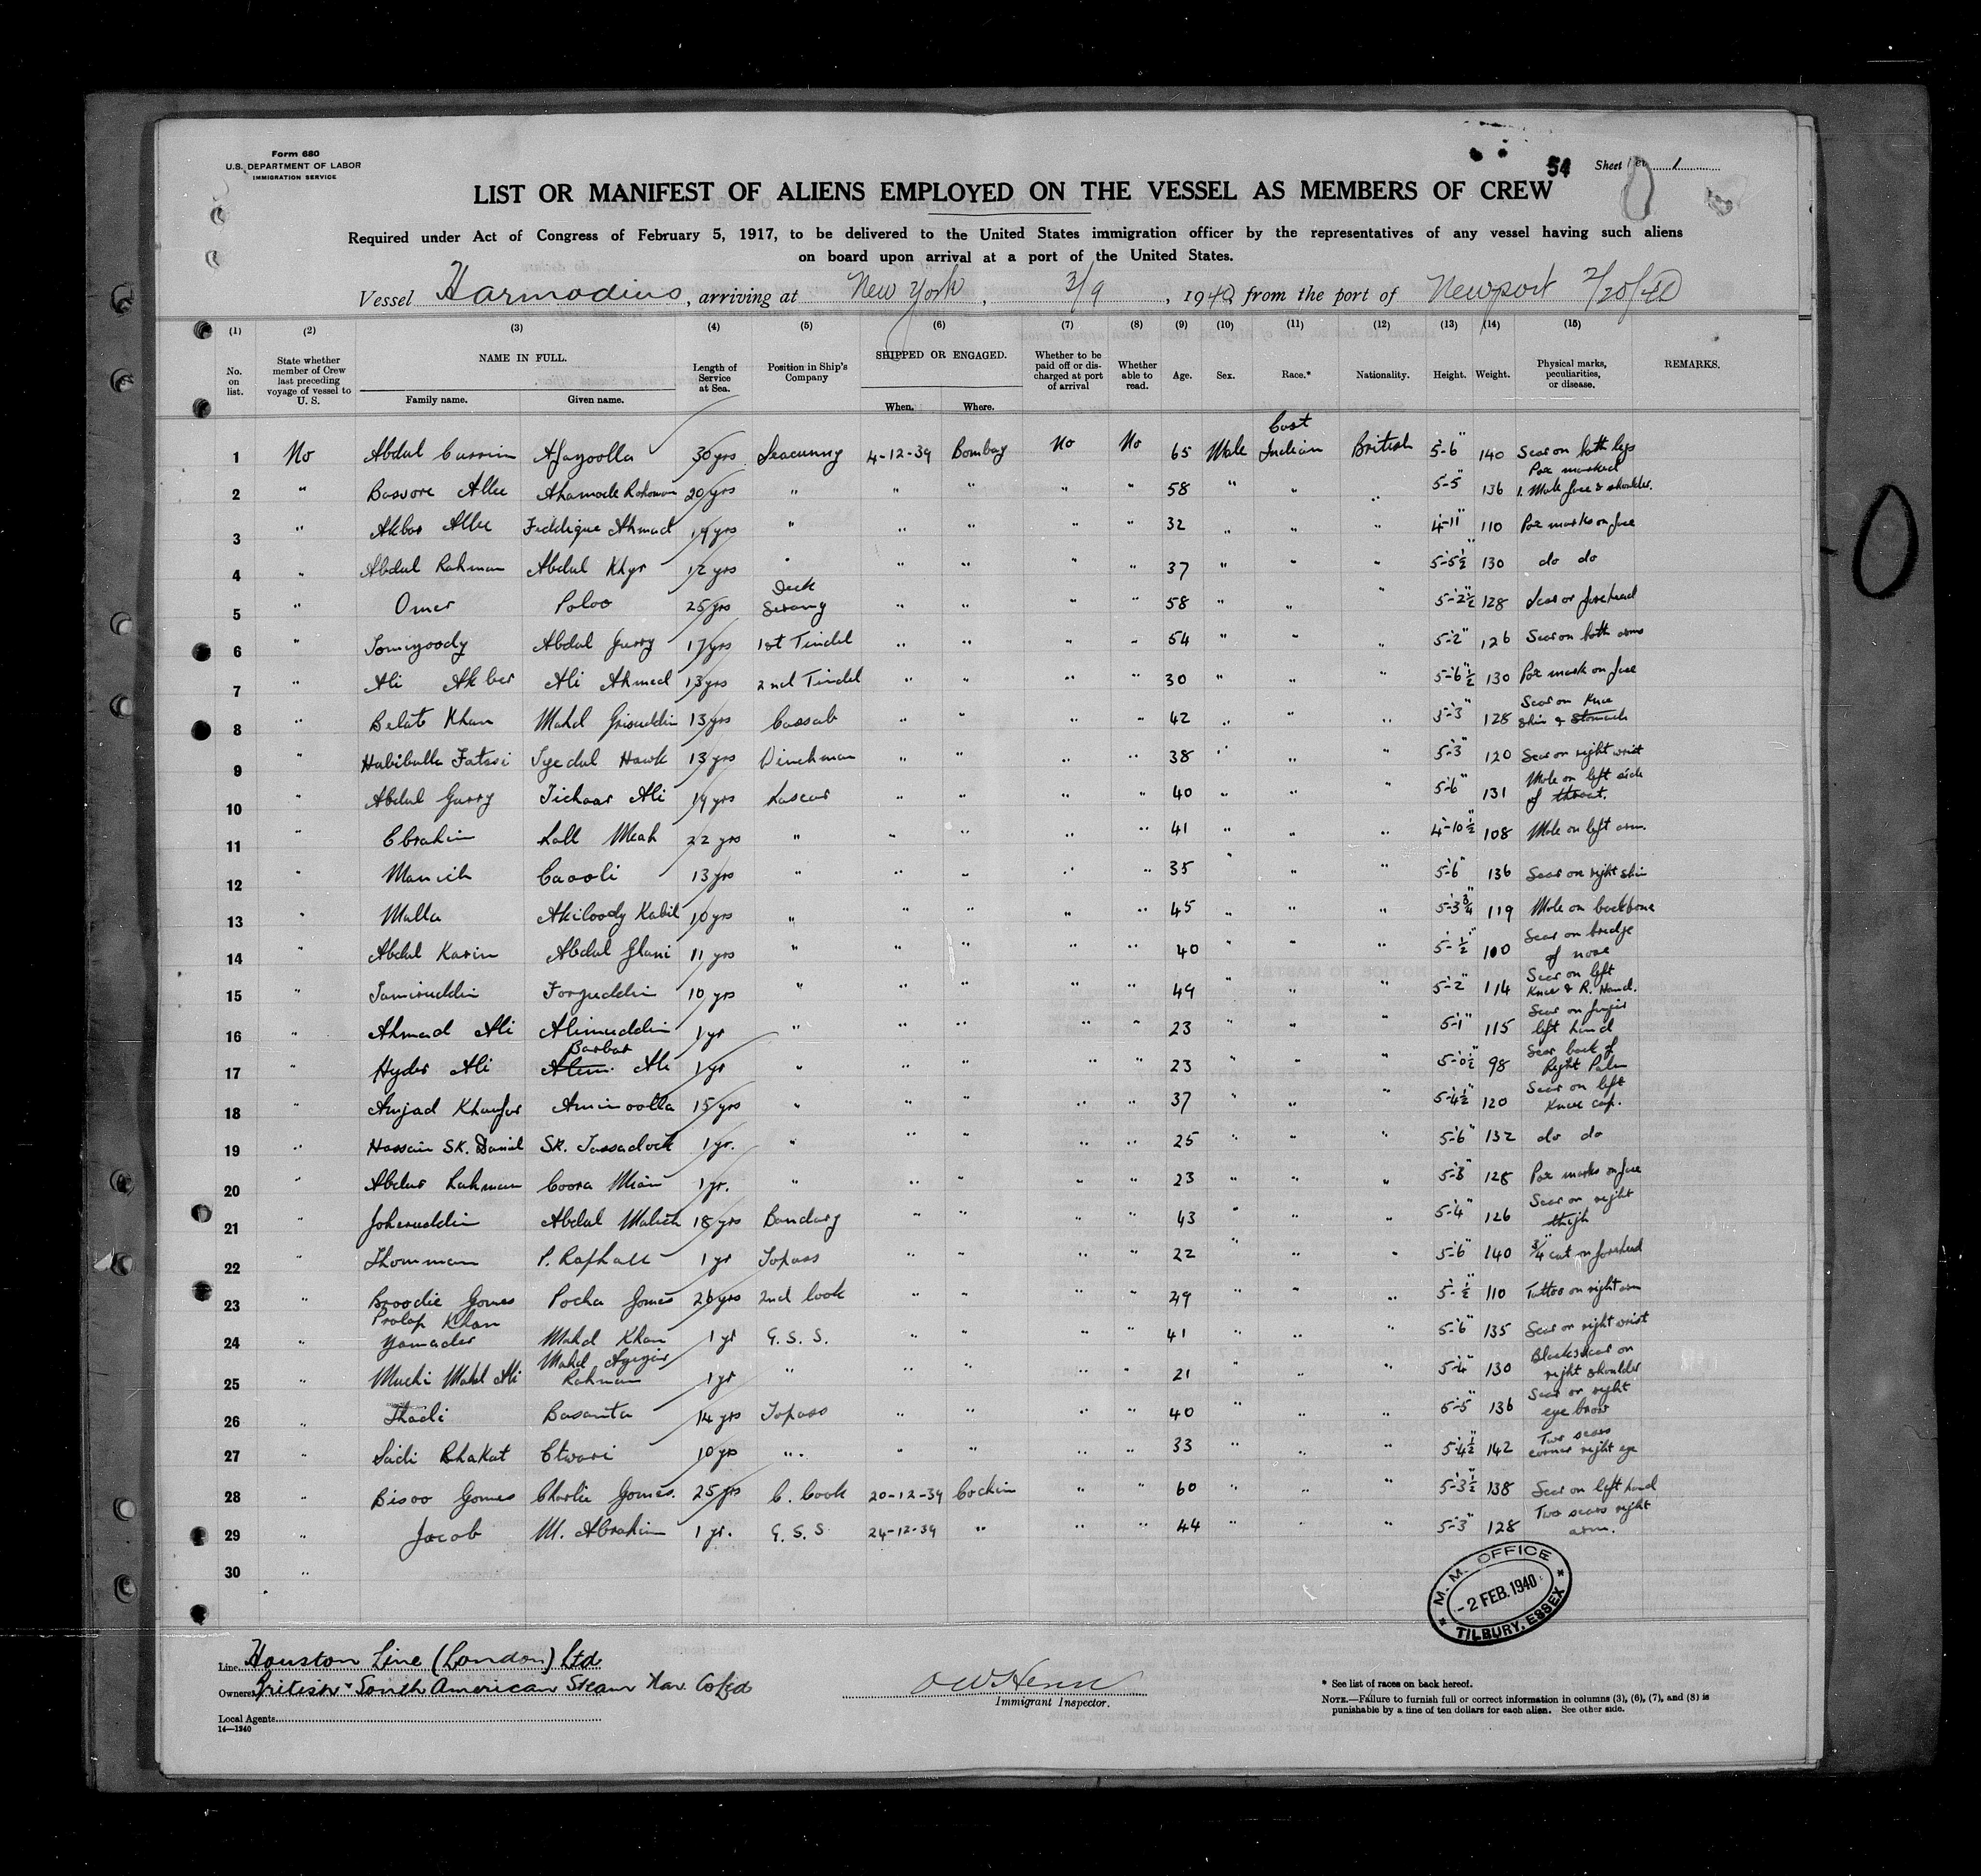 Form 680
U.S. DEPARTMENT OF LABOR
IMMIGRATION SERVICE
54 Sheet 1
LIST OR MANIFEST OF ALIENS EMPLOYED ON THE VESSEL AS MEMBERS OF CREW
Required under Act of Congress of February 5, 1917, to be delivered to the United States immigration officer by the representatives of any vessel having such aliens
on board upon arrival at a port of the United States.
Vessel Harmodius, arriving at New York, 3/9, 1940 from the port of Newport 2/20/40
(1) (2) (3) (4) (5) (6) (7) (8) (9) (10) (11) (12) (13) (14) (15)
No. on list. State whether member of Crew last preceding voyage of vessel to U. S. NAME IN FULL. Family name. Given name. Length of Service at Sea. Position in Ship's Company SHIPPED OR ENGAGED. When. Where. Whether to be paid off or discharged at port of arrival Whether able to read. Age. Sex. Race.* Nationality. Height. Weight. Physical marks, peculiarities, or disease. REMARKS.
1 No Abdul Currim 30 yrs Seacunny 4-12-39 Bombay No No 65 Male East Indian British 5-6" 140 Scar on both legs
2 " Bassore Allee Ahamode Rohoman 20 yrs " " " " " 58 " " " 5-5 136 Pox marked 1. Mole face & shoulder.
3 " Akbar Allee Fiddique Ahmad 14 yrs " " " " " 32 " " " 4-11" 110 Pox marks on face
4 " Abdul Rahman Abdul Khyr 12 yrs " " " " " 37 " " " 5-5½" 130 do do
5 " Omer Poloo 25 yrs Deck Serang " " " " 58 " " " 5-2½ 128 Scar on forehead
6 " Abdul Gurry 17 yrs 1st Tindel " " " " 54 " " " 5-2" 126 Scar on both arms
7 " Ali Akber Ali Ahmed 13 yrs 2nd Tindel " " " " 30 " " " 5-6½" 130 Pox mark on face
8 " Belat Khan Mahd 13 yrs Cassab " " " " 42 " " " 5-3" 128 Scar on Knee Shin & Stomach
9 " Habibulla Fatasi Syedul Hawk 13 yrs Winchman " " " " 38 " " " 5-3" 120 Scar on right wrist
10 " Abdul Gurry Tichaar Ali 14 yrs Lascar " " " " 40 " " " 5-6" 131 Mole on left side of throat.
11 " Ebrahim Lall Meah 22 yrs " " " " " 41 " " " 4-10½" 108 Mole on left arm.
12 " Manich Caooli 13 yrs " " " " " 35 " " " 5-6" 136 Scar on right shin
13 " Mulla Akiloody Kabil 10 yrs " " " " " 45 " " " 5-3¾" 119 Mole on backbone
14 " Abdul Karim Abdul Ghani 11 yrs " " " " " 40 " " " 5-½" 100 Scar on bridge of nose
15 " Samiruddin Forjuddin 10 yrs " " " " " 49 " " " 5-2" 114 Scar on left Knee & R. Hand.
16 " Ahmad Ali Alimuddin 1 yr " " " " " 23 " " " 5-1" 115 Scar on finger left hand
17 " Hyder Ali Barbar Ali 1 yr " " " " " 23 " " " 5-0½" 98 Scar back of Right Palm
18 " Amjad Aminoolla 15 yrs " " " " " 37 " " " 5-4½" 120 Scar on left Knee cap.
19 " Hossain SK. Danial SK. Tassadock 1 yr. " " " " " 25 " " " 5-6" 132 do do
20 " Abdur Rahman Coora Mian 1 yr. " " " " " 23 " " " 5-3" 128 Pox marks on face
21 " Joheruddin Abdul Malich 18 yrs Bandary " " " " 43 " " " 5-4" 126 Scar on right thigh
22 " Thomman P. Raphael 1 yr Topass " " " " 22 " " " 5-6" 140 ¾" cut on forehead
23 " Broodie Gomes Pocha Gomes 26 yrs 2nd Cook " " " " 49 " " " 5-½" 110 Tattoo on right arm
24 " Prolap Khan Yamader Mahd Khan 1 yr G. S. S. " " " " 41 " " " 5-6" 135 Scar on right wrist
25 " Muchi Mahd Ali Mahd Rahman 1 yr " " " " " 21 " " " 5-4" 130 Black scar on right shoulder
26 " Thadi Basanta 14 yrs Topass " " " " 40 " " " 5-5" 136 Scar on right eye brow
27 " Saidi Bhakat Etwari 10 yrs " " " " " 33 " " " 5-4½" 142 Two scars corner right eye
28 " Bisoo Gomes Charlie Gomes. 25 yrs C. Cook 20-12-39 Cochin " " 60 " " " 5-3½" 138 Scar on left hand
29 " Jacob M. Abrahim 1 yr. G. S. S 24-12-39 " " " 44 " " " 5-3" 128 Two scars right arm.
30 "
M. M. OFFICE
-2 FEB. 1940
TILBURY, ESSEX
Line Houston Line (London) Ltd
Owners British & South American Steam Nav. Co Ltd
Immigrant Inspector.
Local Agents
14—1240
* See list of races on back hereof.
NOTE.—Failure to furnish full or correct information in columns (3), (6), (7), and (8) is
punishable by a fine of ten dollars for each alien. See other side.